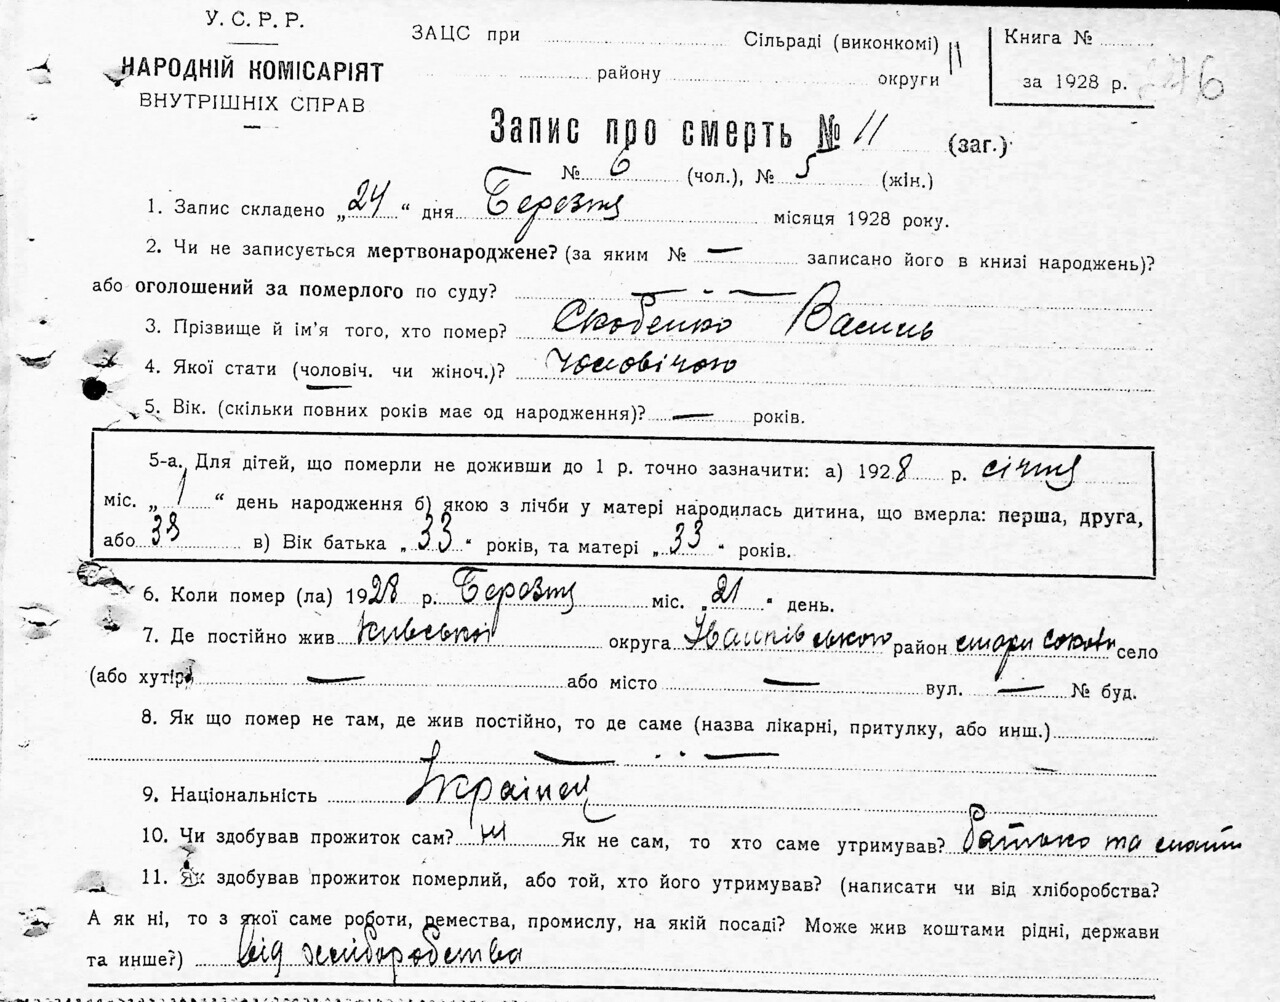 У. С. Р. Р.
НАРОДНІЙ КОМІСАРІЯТ
ВНУТРІШНІХ СПРАВ
ЗАЦС при Сільраді (виконкомі)
району округи
Книга №
за 1928 р.
Запис про смерть № 11 (заг.)
№ 6 (чол.), № 5 (жін.)
1. Запис складено „24“ дня Березня місяця 1928 року.
2. Чи не записується мертвонароджене? (за яким № — записано його в книзі народжень)?
або оголошений за померлого по суду? — " —
3. Прізвище й ім'я того, хто помер? Скобенко Василь
4. Якої стати (чоловіч. чи жіноч.)? чоловічою
5. Вік. (скільки повних років має од народження)? — років.
5-а. Для дітей, що померли не доживши до 1 р. точно зазначити: а) 1928 р. січня
міс. „1“ день народження б) якою з лічби у матері народилась дитина, що вмерла: перша, друга,
або в) Вік батька „33“ років, та матері „33“ років.
6. Коли помер (ла) 1928 р. Березня міс. „21“ день.
7. Де постійно жив Київської округа Іванківського район село
(або хутір) — або місто — вул. — № буд.
8. Як що помер не там, де жив постійно, то де саме (назва лікарні, притулку, або инш.)
— " —
9. Національність Українец
10. Чи здобував прожиток сам? ні Як не сам, то хто саме утримував? Батько та мати
11. Як здобував прожиток померлий, або той, хто його утримував? (написати чи від хліборобства?
А як ні, то з якої саме роботи, ремества, промислу, на якій посаді? Може жив коштами рідні, держави
та инше?) від хліборобства